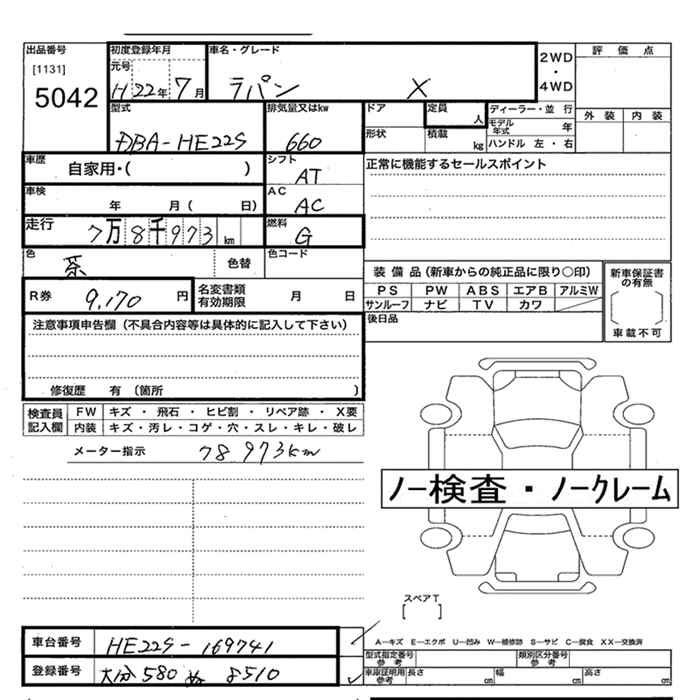 出品番号
[1131]
5042
初度登録年月
元号
H22年 7月
車名・グレード
ラパン X
2WD
・
4WD
評価点
外装 内装
型式
DBA-HE22S
排気量又はkw
660
ドア
形状
定員
人
積載
kg
ディーラー・並 行
モデル年式 年
ハンドル 左・右
車歴
自家用・( )
シフト
AT
正常に機能するセールスポイント
車検
年 月( 日)
AC
AC
走行
7万8千973km
燃料
G
色
茶
色替
色コード
R券
9,170 円
名変書類有効期限
月 日
装備品(新車からの純正品に限り○印)
PS PW ABS エアB アルミW
サンルーフ ナビ TV カワ
後日品
新車保証書の有無
車載不可
注意事項申告欄(不具合内容等は具体的に記入して下さい)
修復歴 有 (箇所 )
検査員記入欄
FW キズ ・ 飛石 ・ ヒビ割 ・ リペア跡 ・ X要
内装 キズ・汚レ・コゲ・穴・スレ・キレ・破レ
メーター指示 78,973km
ノー検査・ノークレーム
スペアT
[ ]
A―キズ E―エクボ U―凹み W―補修跡 S―サビ C―腐食 XX―交換済
車台番号 HE22S-169741
登録番号 大分580 ぬ 8510
型式指定番号 参考
類別区分番号 参考
車庫証明用 参考
長さ cm 幅 cm 高さ cm